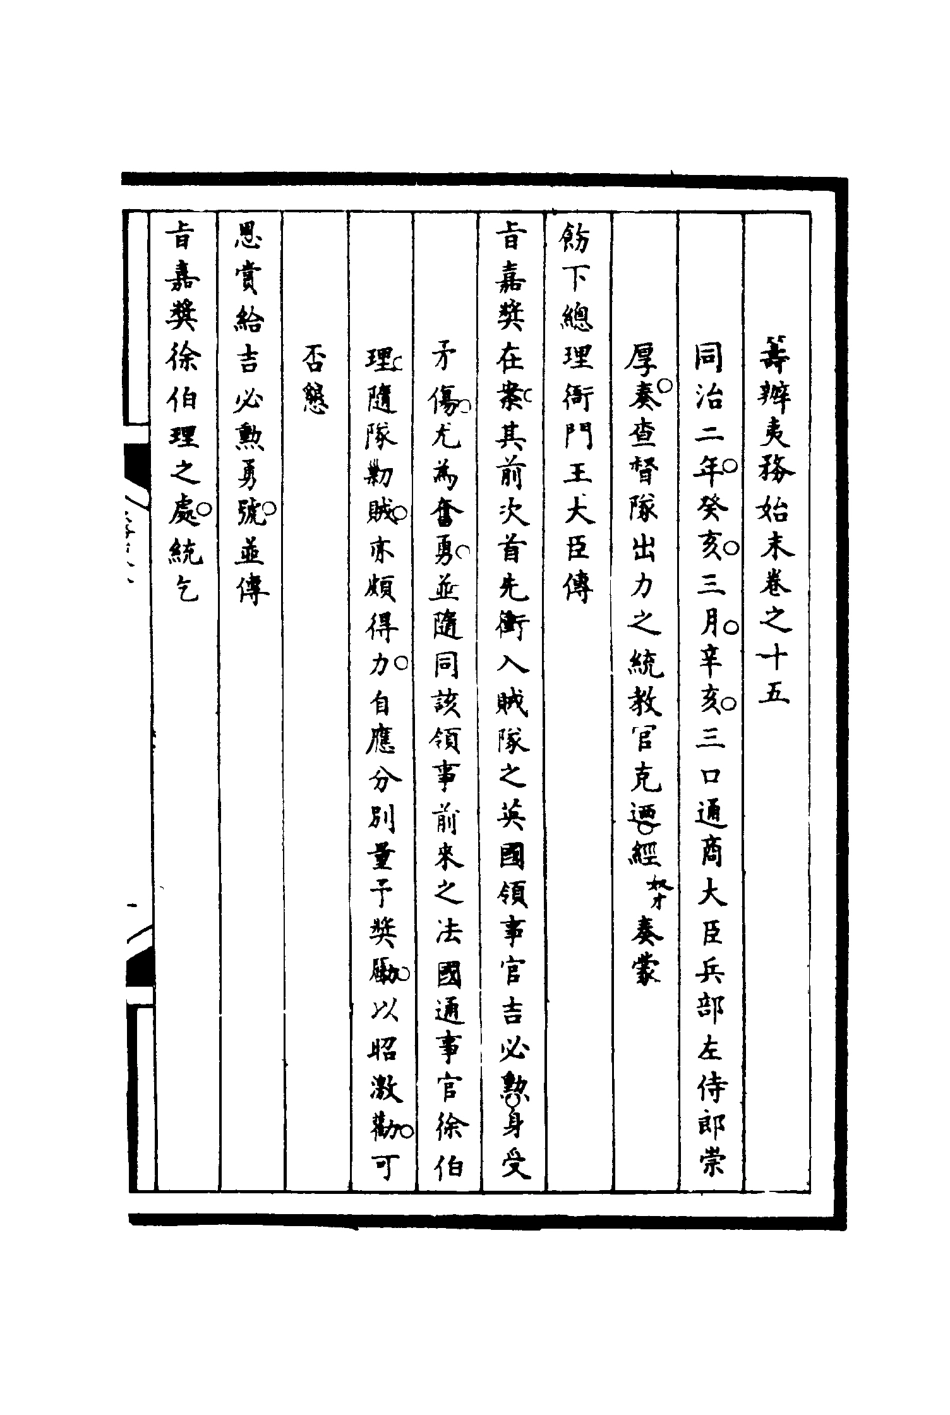 籌辦夷務始末卷之十五
同治二年。癸亥。三月。辛亥。三口通商大臣兵部左侍郎崇
厚奏。查督隊出力之統教官克迺。經奴才奏蒙
飭下總理衙門王大臣傳
旨嘉獎在案。其前次首先衝入賊隊之英國領事官吉必勲。身受
矛傷。尤為奮勇。並隨同該領事前來之法國通事官徐伯
理。隨隊勦賊。亦頗得力。自應分別量予獎勵。以昭激勸。可
否懇
恩賞給吉必勲勇號。並傳
旨嘉獎徐伯理之處。統乞